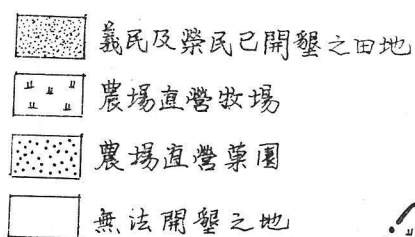 義民及榮民已開墾之田地
農場直營牧場
農場直營菓園
無法開墾之地